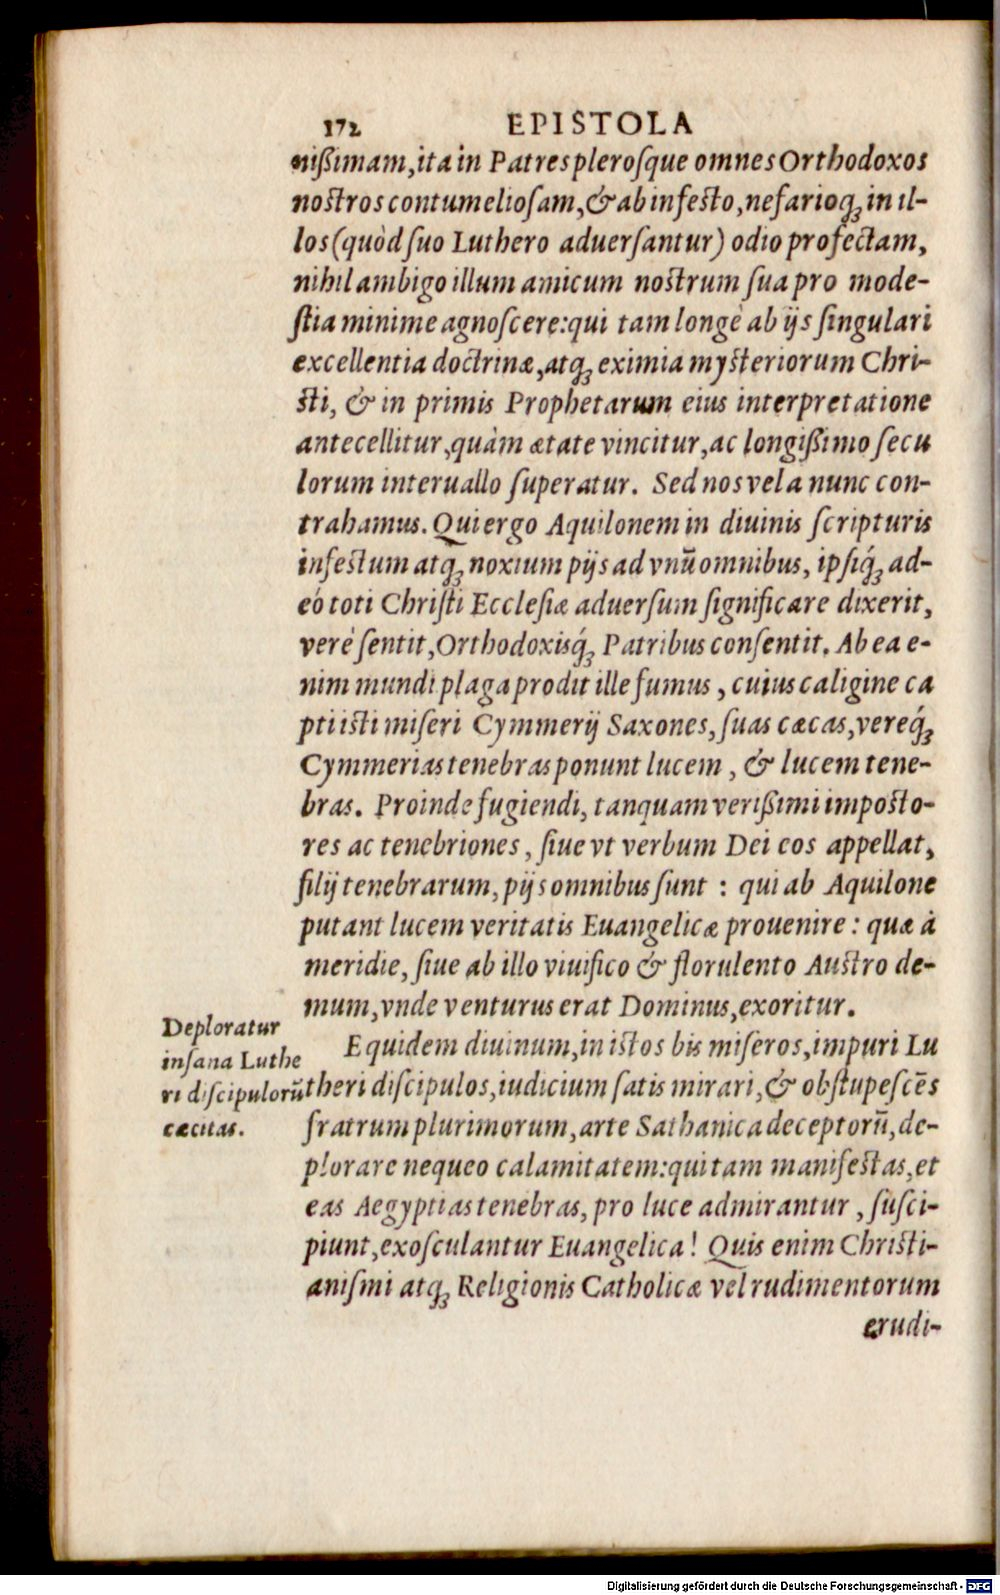 172 EPISTOLA
nißimam, ita in Patres plerosque omnes Orthodoxos
nostros contumeliosam, & ab infesto, nefarioq́ꝫ in il-
los (quòd suo Luthero aduersantur) odio profectam,
nihil ambigo illum amicum nostrum sua pro mode-
stia minime agnoscere: qui tam longè ab ijs singulari
excellentia doctrinæ, atqꝫ eximia mysteriorum Chri-
sti, & in primis Prophetarum eius interpretatione
antecellitur, quàm ætate vincitur, ac longißimo secu
lorum interuallo superatur. Sed nos vela nunc con-
trahamus. Qui ergo Aquilonem in diuinis scripturis
infestum atqꝫ noxium pijs ad vnũ omnibus, ipsiq́ꝫ ad-
eò toti Christi Ecclesiæ aduersum significare dixerit,
verè sentit, Orthodoxisq́ꝫ Patribus consentit. Ab ea e-
nim mundi plaga prodit ille fumus, cuius caligine ca
pti isti miseri Cymmerij Saxones, suas cæcas, vereq́ꝫ
Cymmerias tenebras ponunt lucem, & lucem tene-
bras. Proinde fugiendi, tanquam verißimi imposto-
res ac tenebriones, siue vt verbum Dei eos appellat,
filij tenebrarum, pijs omnibus sunt : qui ab Aquilone
putant lucem veritatis Euangelicæ prouenire : quæ à
meridie, siue ab illo viuifico & florulento Austro de-
mum, vnde venturus erat Dominus, exoritur.
Deploratur
insana Luthe
ri discipulorũ
cæcitas.
Equidem diuinum, in istos bis miseros, impuri Lu
theri discipulos, iudicium satis mirari, & obstupescẽs
fratrum plurimorum, arte Sathanica deceptorũ, de-
plorare nequeo calamitatem: qui tam manifestas, et
eas Aegyptias tenebras, pro luce admirantur, susci-
piunt, exosculantur Euangelica! Quis enim Christi-
anismi atqꝫ Religionis Catholicæ vel rudimentorum
erudi-
Digitalisierung gefördert durch die Deutsche Forschungsgemeinschaft - DFG